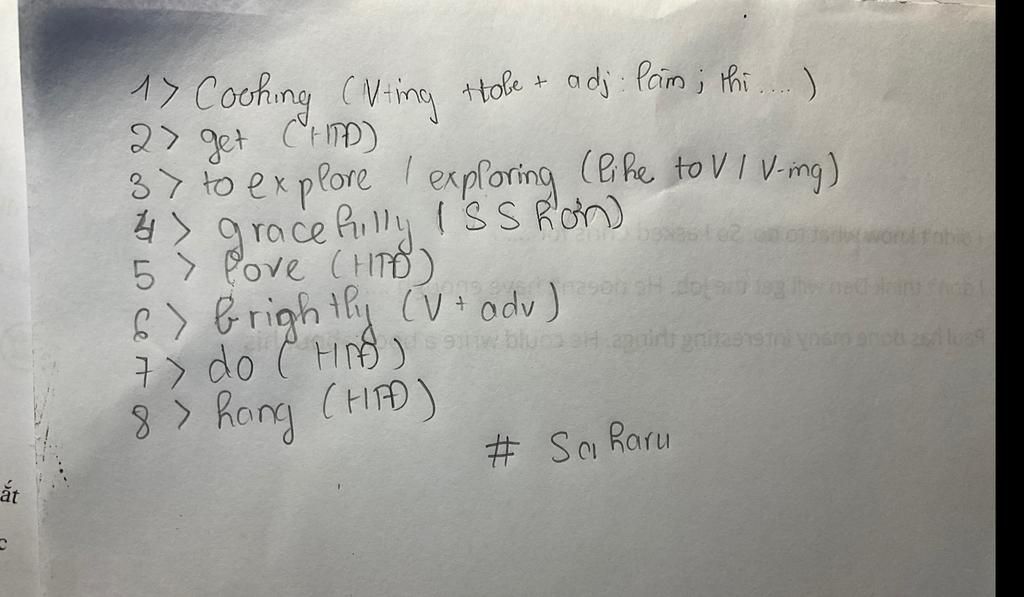 1> Cooking (V-ing + tobe + adj: làm; thì....)
2> get (HTĐ)
3> to explore / exploring (like to V / V-ing)
4> gracefully (SS hơn)
5> love (HTĐ)
6> brightly (V + adv)
7> do (HTĐ)
8> hang (HTĐ)
# Saharu
ắt
c